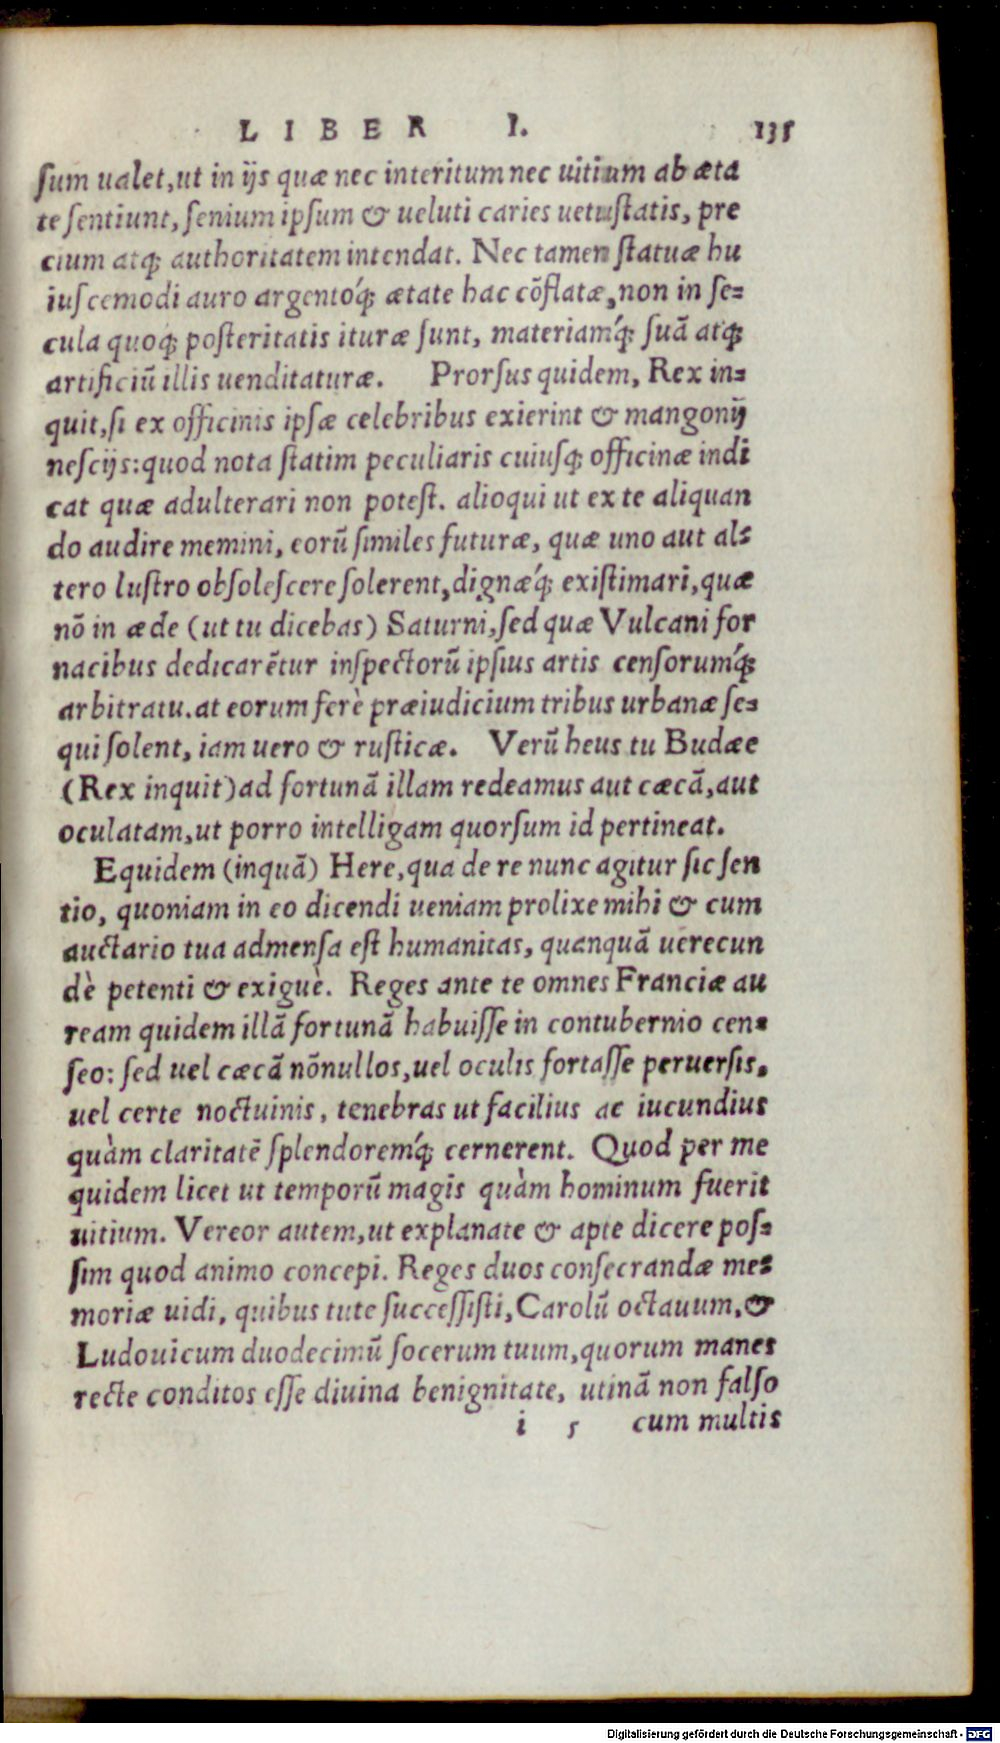 LIBER I. 135
ſum ualet,ut in ijs quæ nec interitum nec uitium ab æta
te ſentiunt, ſenium ipſum & ueluti caries uetuſtatis, pre
cium atq; authoritatem intendat. Nec tamen ſtatuæ hu
iuſcemodi auro argentóq; ætate hac cõflatæ, non in ſe=
cula quoq; poſteritatis ituræ ſunt, materiamq́; ſuã atq;
artificiũ illis uenditaturæ. Prorſus quidem, Rex in=
quit,ſi ex officinis ipſæ celebribus exierint & mangonij
neſcijs:quod nota ſtatim peculiaris cuiuſq; officinæ indi
cat quæ adulterari non poteſt. alioqui ut ex te aliquan
do audire memini, eorũ ſimiles futuræ, quæ uno aut al=
tero luſtro obſoleſcere ſolerent,dignæq́; exiſtimari,quæ
nõ in æde (ut tu dicebas) Saturni,ſed quæ Vulcani for
nacibus dedicarẽtur inſpectorũ ipſius artis cenſorumq́;
arbitratu.at eorum ferè præiudicium tribus urbanæ ſe=
qui ſolent, iam uero & ruſticæ. Verũ heus tu Budæe
(Rex inquit)ad fortunã illam redeamus aut cæcã,aut
oculatam,ut porro intelligam quorſum id pertineat.
Equidem (inquã) Here,qua de re nunc agitur ſic ſen
tio, quoniam in eo dicendi ueniam prolixe mihi & cum
auctario tua admenſa eſt humanitas, quanquã uerecun
dè petenti & exiguè. Reges ante te omnes Franciæ au
ream quidem illã fortunã habuiſſe in contubernio cen=
ſeo: ſed uel cæcã nõnullos,uel oculis fortaſſe peruerſis,
uel certe noctuinis, tenebras ut facilius ac iucundius
quàm claritatẽ ſplendoremq́; cernerent. Quod per me
quidem licet ut temporũ magis quàm hominum fuerit
uitium. Vereor autem,ut explanate & apte dicere poſ=
ſim quod animo concepi. Reges duos conſecrandæ me=
moriæ uidi, quibus tute ſucceſſiſti,Carolũ octauum,&
Ludouicum duodecimũ ſocerum tuum,quorum manes
recte conditos eſſe diuina benignitate, utinã non falſo
i 5 cum multis
Digitalisierung gefördert durch die Deutsche Forschungsgemeinschaft - DFG